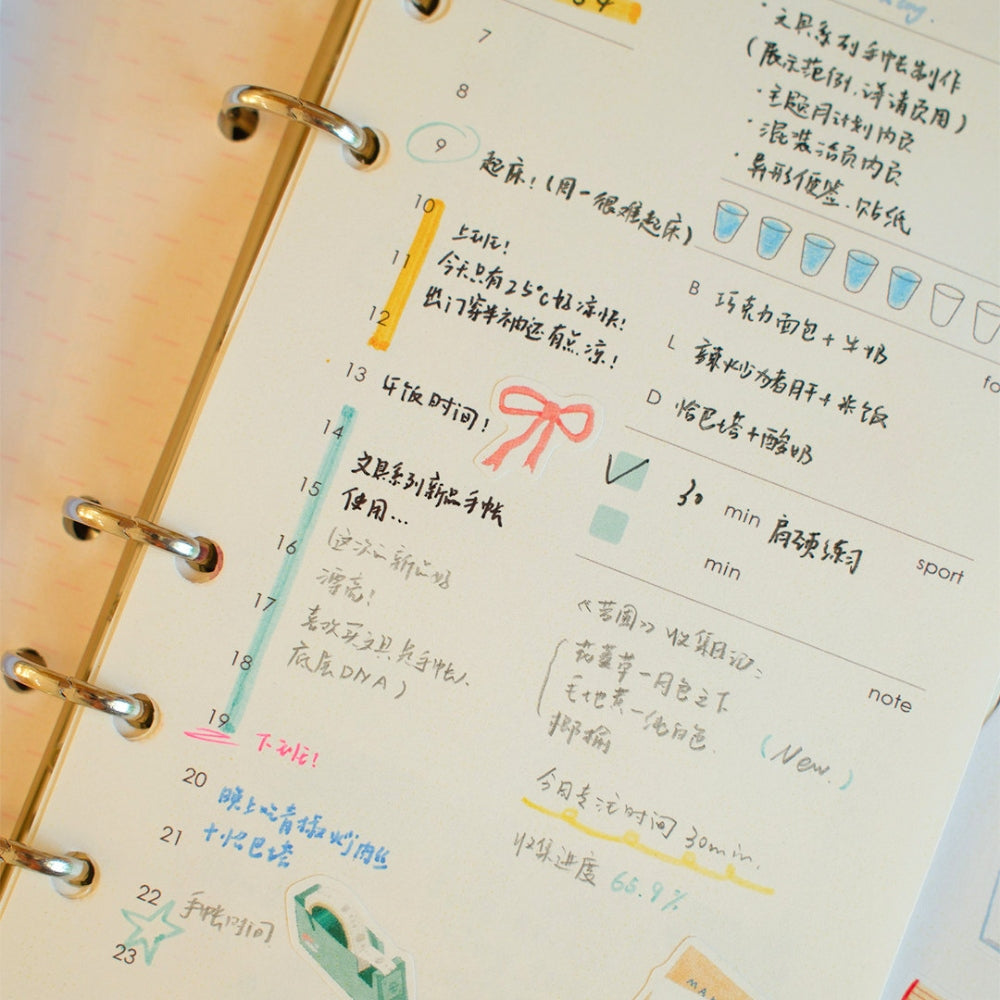 7
8
9
起床！（周一很难起床）
10
上班！
11
今天只有25°C好凉快！
12
出门穿半袖还有点凉！
13
午饭时间！
14
文具系列新品手帐
15
使用...
16
（这次的新品好
漂亮！
17
喜欢买文具是手帐人
18
底层DNA）
19
下班！
20
晚上吃青椒炒肉丝
21
+恰巴塔
22
手帐时间
23
· 文具系列手帐制作
（展示范例，详请页用）
· 主题月计划内页
· 混装活页内页
· 异形便签、贴纸
B 巧克力面包+牛奶
L 辣炒猪肝+米饭
D 恰巴塔+酸奶
fo
30 min 肩颈练习
sport
min
note
收集日记：
花萱草—月色之下
毛地黄—纯白色
(New.)
今日专注时间 30min.
收集进度 65.9%